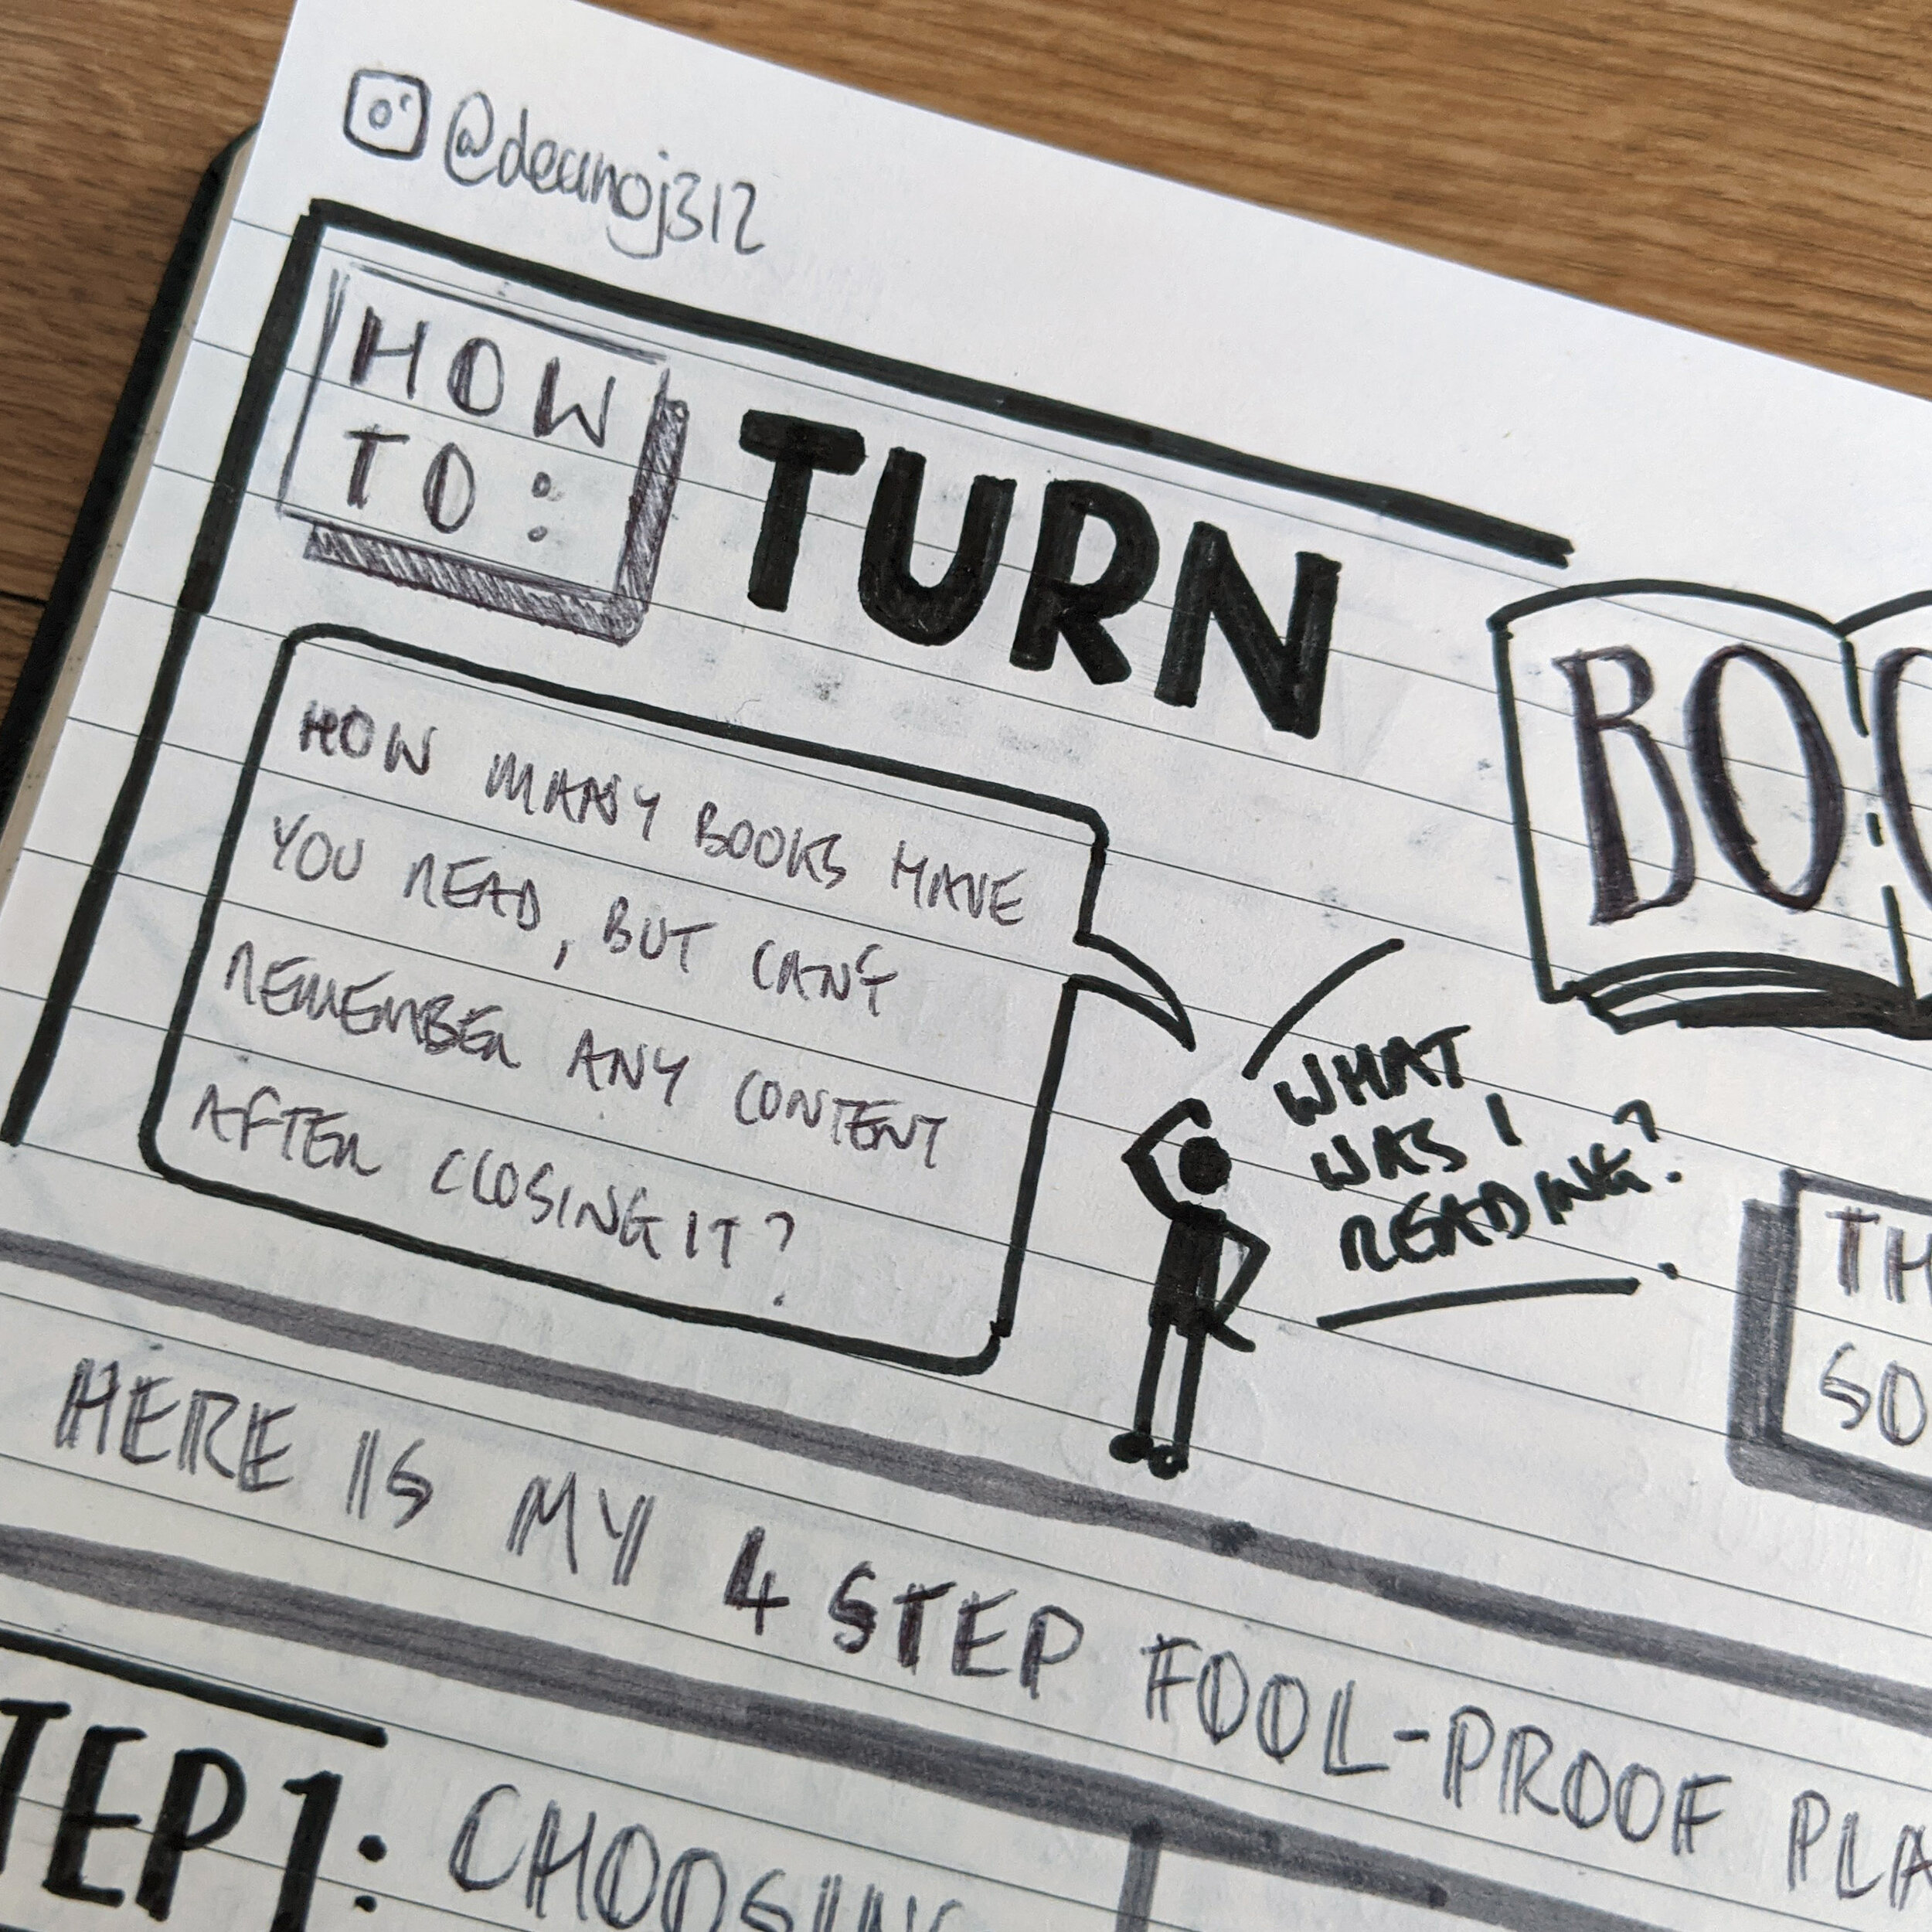 @deanoj312
HOW
TO:
TURN
HOW MANY BOOKS HAVE
YOU READ, BUT CAN'T
REMEMBER ANY CONTENT
AFTER CLOSING IT?
WHAT
WAS I
READING?
HERE IS MY 4 STEP FOOL-PROOF
STEP 1: CHOOSING